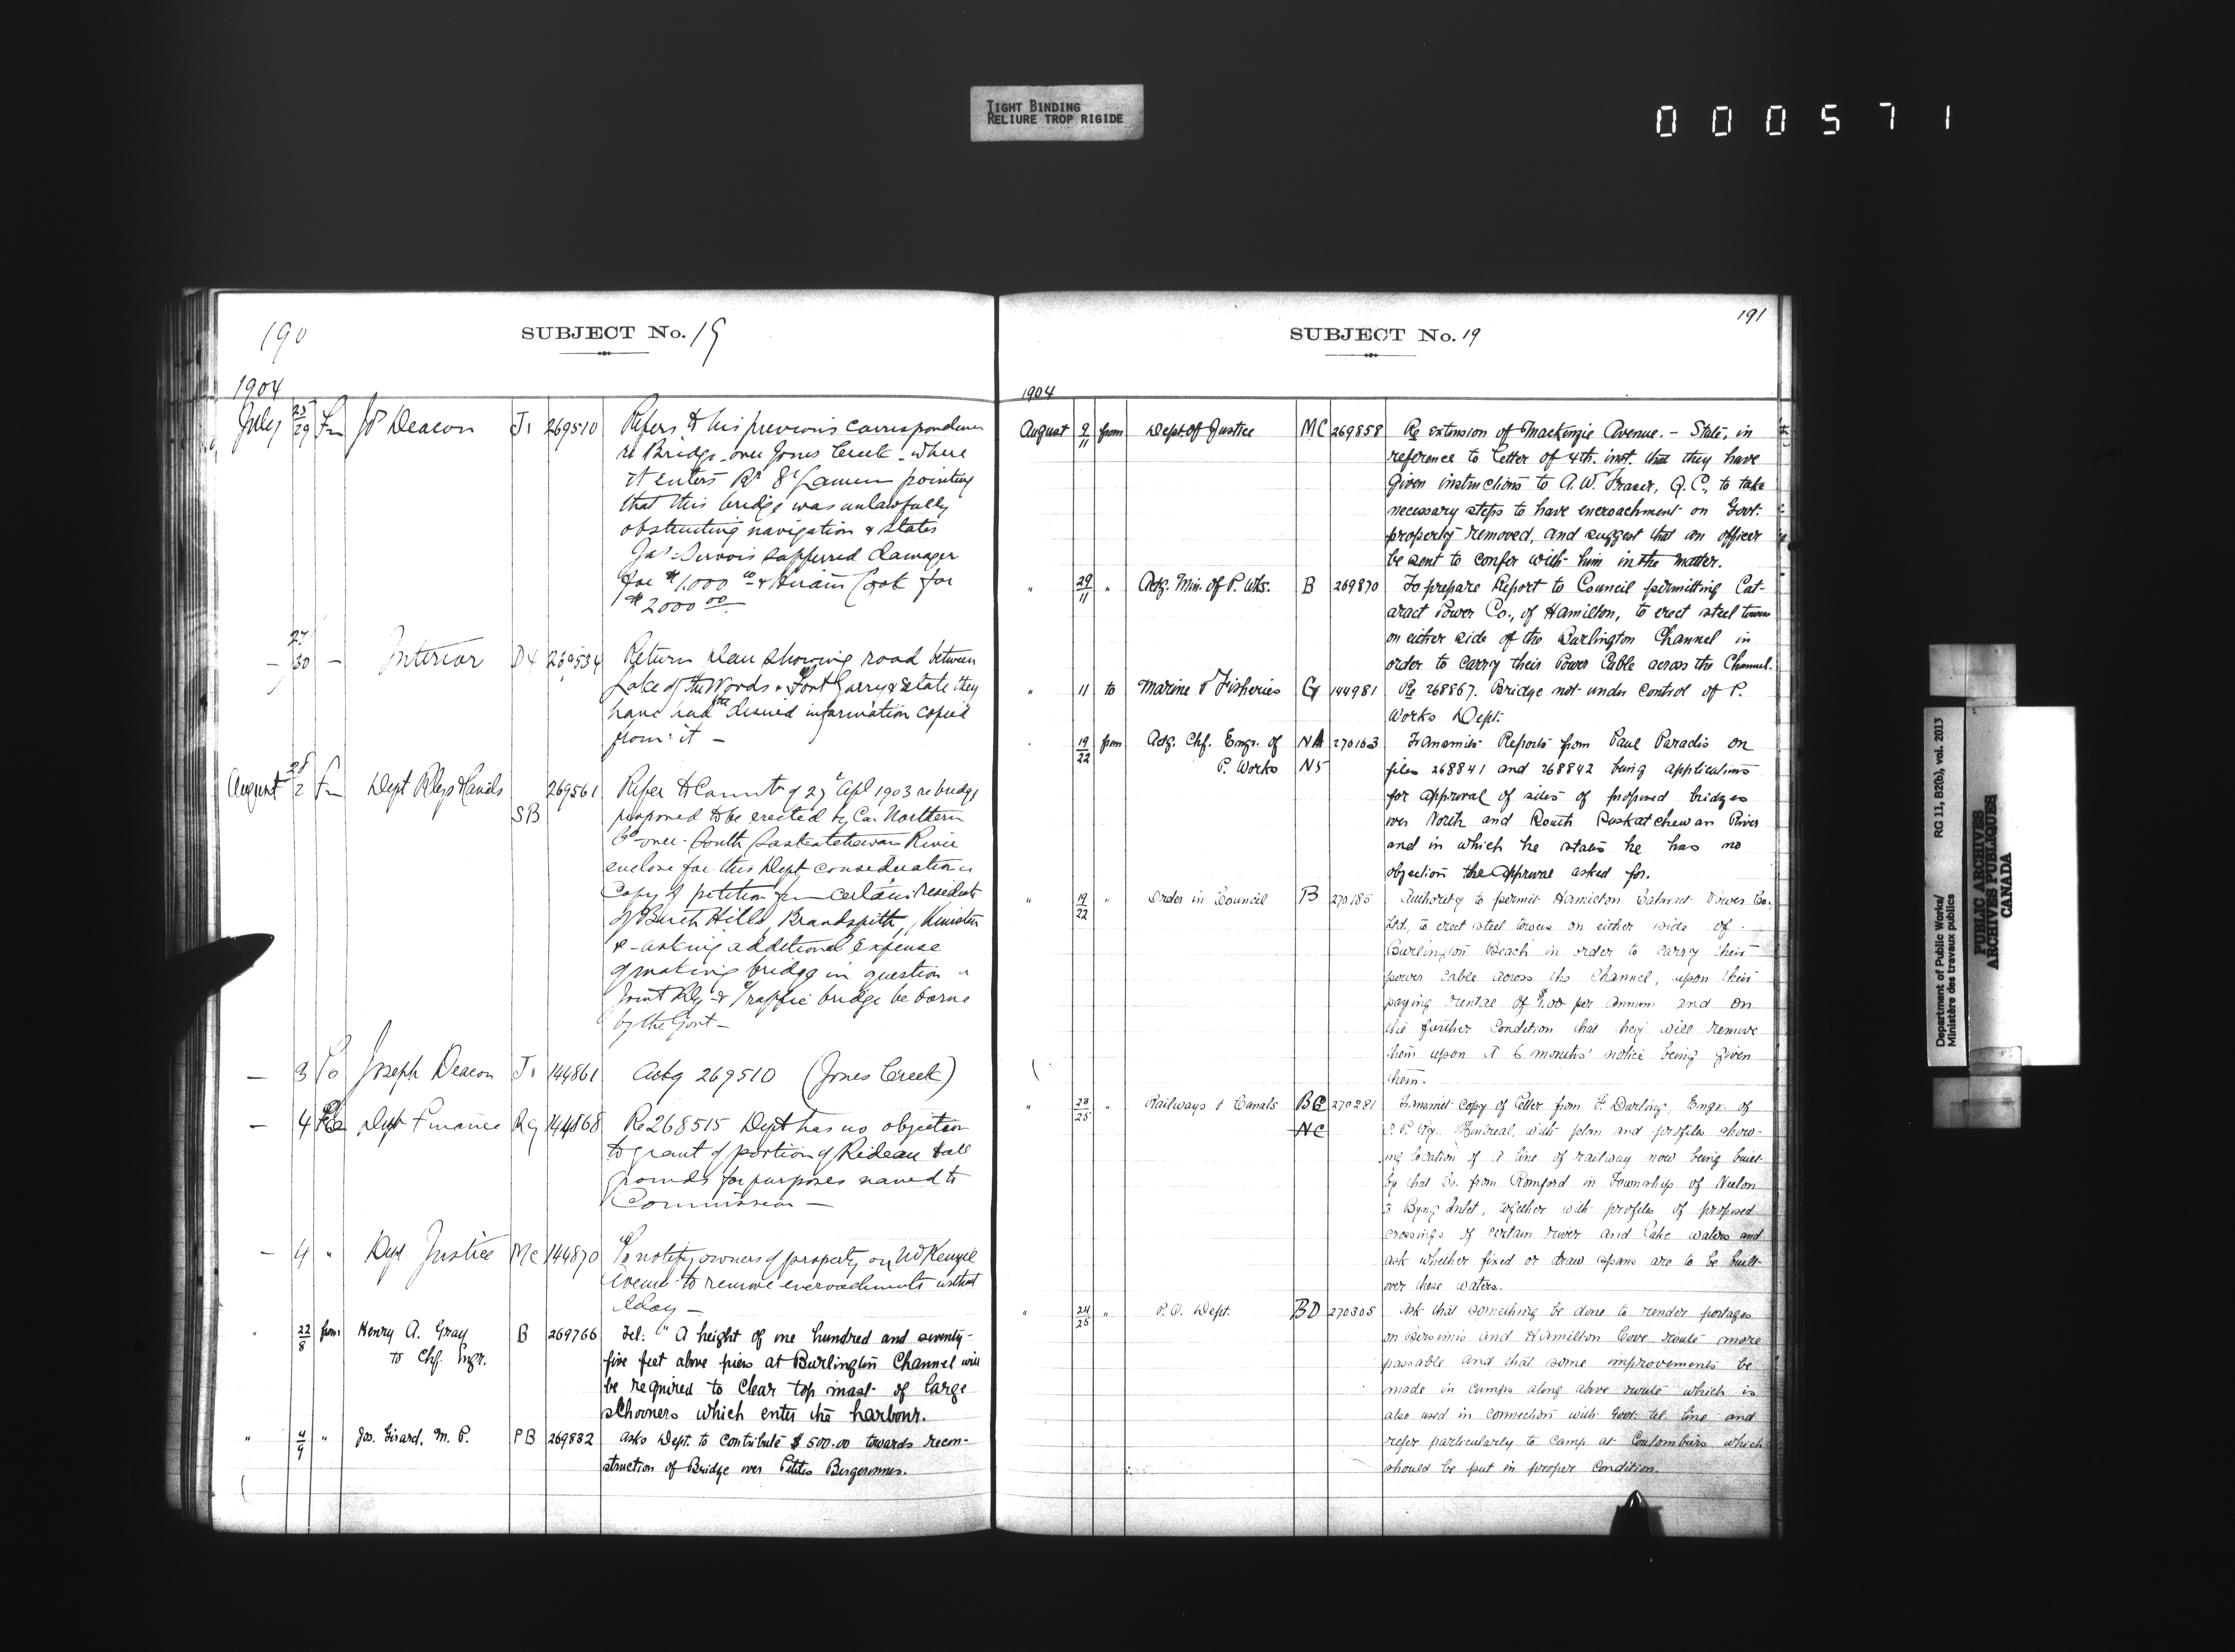 TIGHT BINDING
RELIURE TROP RIGIDE
000571
190
SUBJECT No. 19
1904
July 25/29 Fm Jos Deacon J1 269510 Refers to his previous correspondence
re Bridge over Jones Creek where
it enters Rr St Lawrence pointing
that this bridge was unlawfully
obstructing navigation & states
Jas Servois suffered damages
for $1,000 00 & Hiram Cook for
$2000 00
— 27/30 — Interior D4 269534 Return plan showing road between
Lake of the Woods & Fort Garry & state they
have had the desired information copied
from it —
August 28/2 Fm Dept Rlys & Canals SB 269561 Refer to Commt of 27 Apl 1903 re bridge
proposed to be erected by Ca. Northern
Co over South Saskatchewan River
enclose for this Dept consideration
Copy of petition fm certain residents
of Birch Hills, Brandspith, Kinistin
& asking additional expense
of making bridge in question a
Joint Rly & Traffic bridge be borne
by the Govt —
— 3 To Joseph Deacon J1 144861 Ackg 269510 (Jones Creek)
— 4 Dept Finance Rg 144868 Re 268515 Dept has no objection
to grant of portion of Rideau Hall
grounds for purposes named to
Commission —
— 4 " Dept Justice Mc 144870 To notify owners of property on McKenzie
Avenue to remove encroachments without
delay —
" 22/8 from Henry A. Gray B 269766 Tel: "A height of one hundred and seventy-
to Chf. Engr. five feet above piers at Burlington Channel will
be required to clear top mast of large
schooners which enter the harbour.
" 4/9 " Jos. Girard, M. P. PB 269832 Asks Dept. to contribute $500.00 towards recon-
struction of Bridge over Petites Bergeronnes.
191
SUBJECT No. 19
1904
August 9/11 from Dept of Justice MC 269858 Re extension of Mackenzie Avenue. — State, in
reference to letter of 4th. inst. that they have
given instructions to A. W. Fraser, Q. C., to take
necessary steps to have encroachment on Govt.
property removed, and suggest that an officer
be sent to confer with him in the matter.
" 29/11 " Actg. Min. of P. Wks. B 269870 To prepare Report to Council permitting Cat-
aract Power Co., of Hamilton, to erect steel towers
on either side of the Burlington Channel in
order to carry their Power Cable across the Channel.
" 11 to Marine & Fisheries G 144981 Re 268867. Bridge not under control of P.
Works Dept.
19/22 from Actg. Chf. Engr. of NA 270163 Transmits Reports from Paul Paradis on
P. Works NS files 268841 and 268842 being applications
for approval of sites of proposed bridges
over North and South Saskatchewan River
and in which he states he has no
objection the approval asked for.
" 19/22 " Order in Council B 270185 Authority to permit Hamilton Cataract Power Co.,
Ltd., to erect steel towers on either side of
Burlington Beach in order to carry their
power cable across the Channel, upon their
paying rental of $1.00 per annum and on
the further condition that they will remove
them upon a 6 months' notice being given
them.
" 23/25 " Railways & Canals BC 270281 Transmit copy of letter from F. Darling, Engr. of
NC C. P. Ry. Montreal, with plan and profiles show-
ing location of a line of railway now being built
by that Co. from Romford in Township of Neelon
to Byng Inlet, together with profiles of proposed
crossings of certain river and lake waters and
ask whether fixed or draw spans are to be built
over these waters.
" 24/25 " P. O. Dept. BD 270305 Ask that something be done to render portages
on Bersimis and Hamilton Cove route more
passable and that some improvements be
made in camps along above route which is
also used in connection with Govt. tel. line and
refer particularly to camp at Coulombiers which
should be put in proper condition.
Department of Public Works/ RG 11, B2(b), vol. 2013
Ministère des travaux publics
PUBLIC ARCHIVES
ARCHIVES PUBLIQUES
CANADA